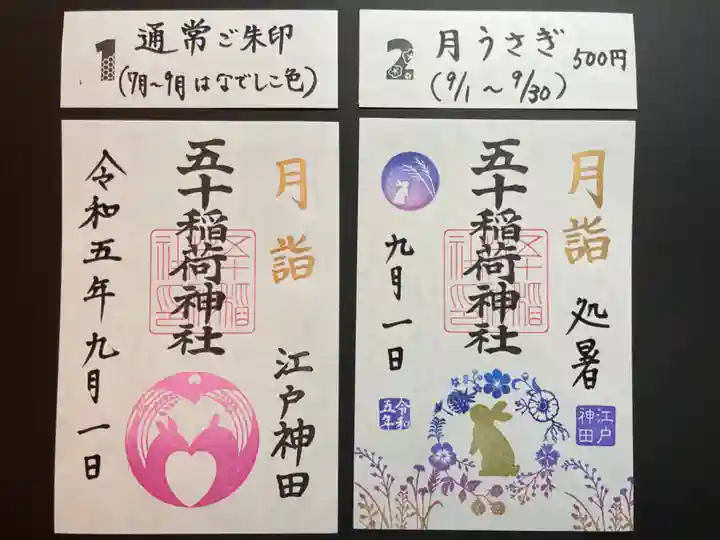 1
通常ご朱印
(7月～9月はなでしこ色)
月詣
江戸神田
五十稲荷神社
令和五年九月一日
2
月うさぎ
(9/1～9/30)
500円
月詣
処暑
江戸
神田
五十稲荷神社
九月一日
令和
五年